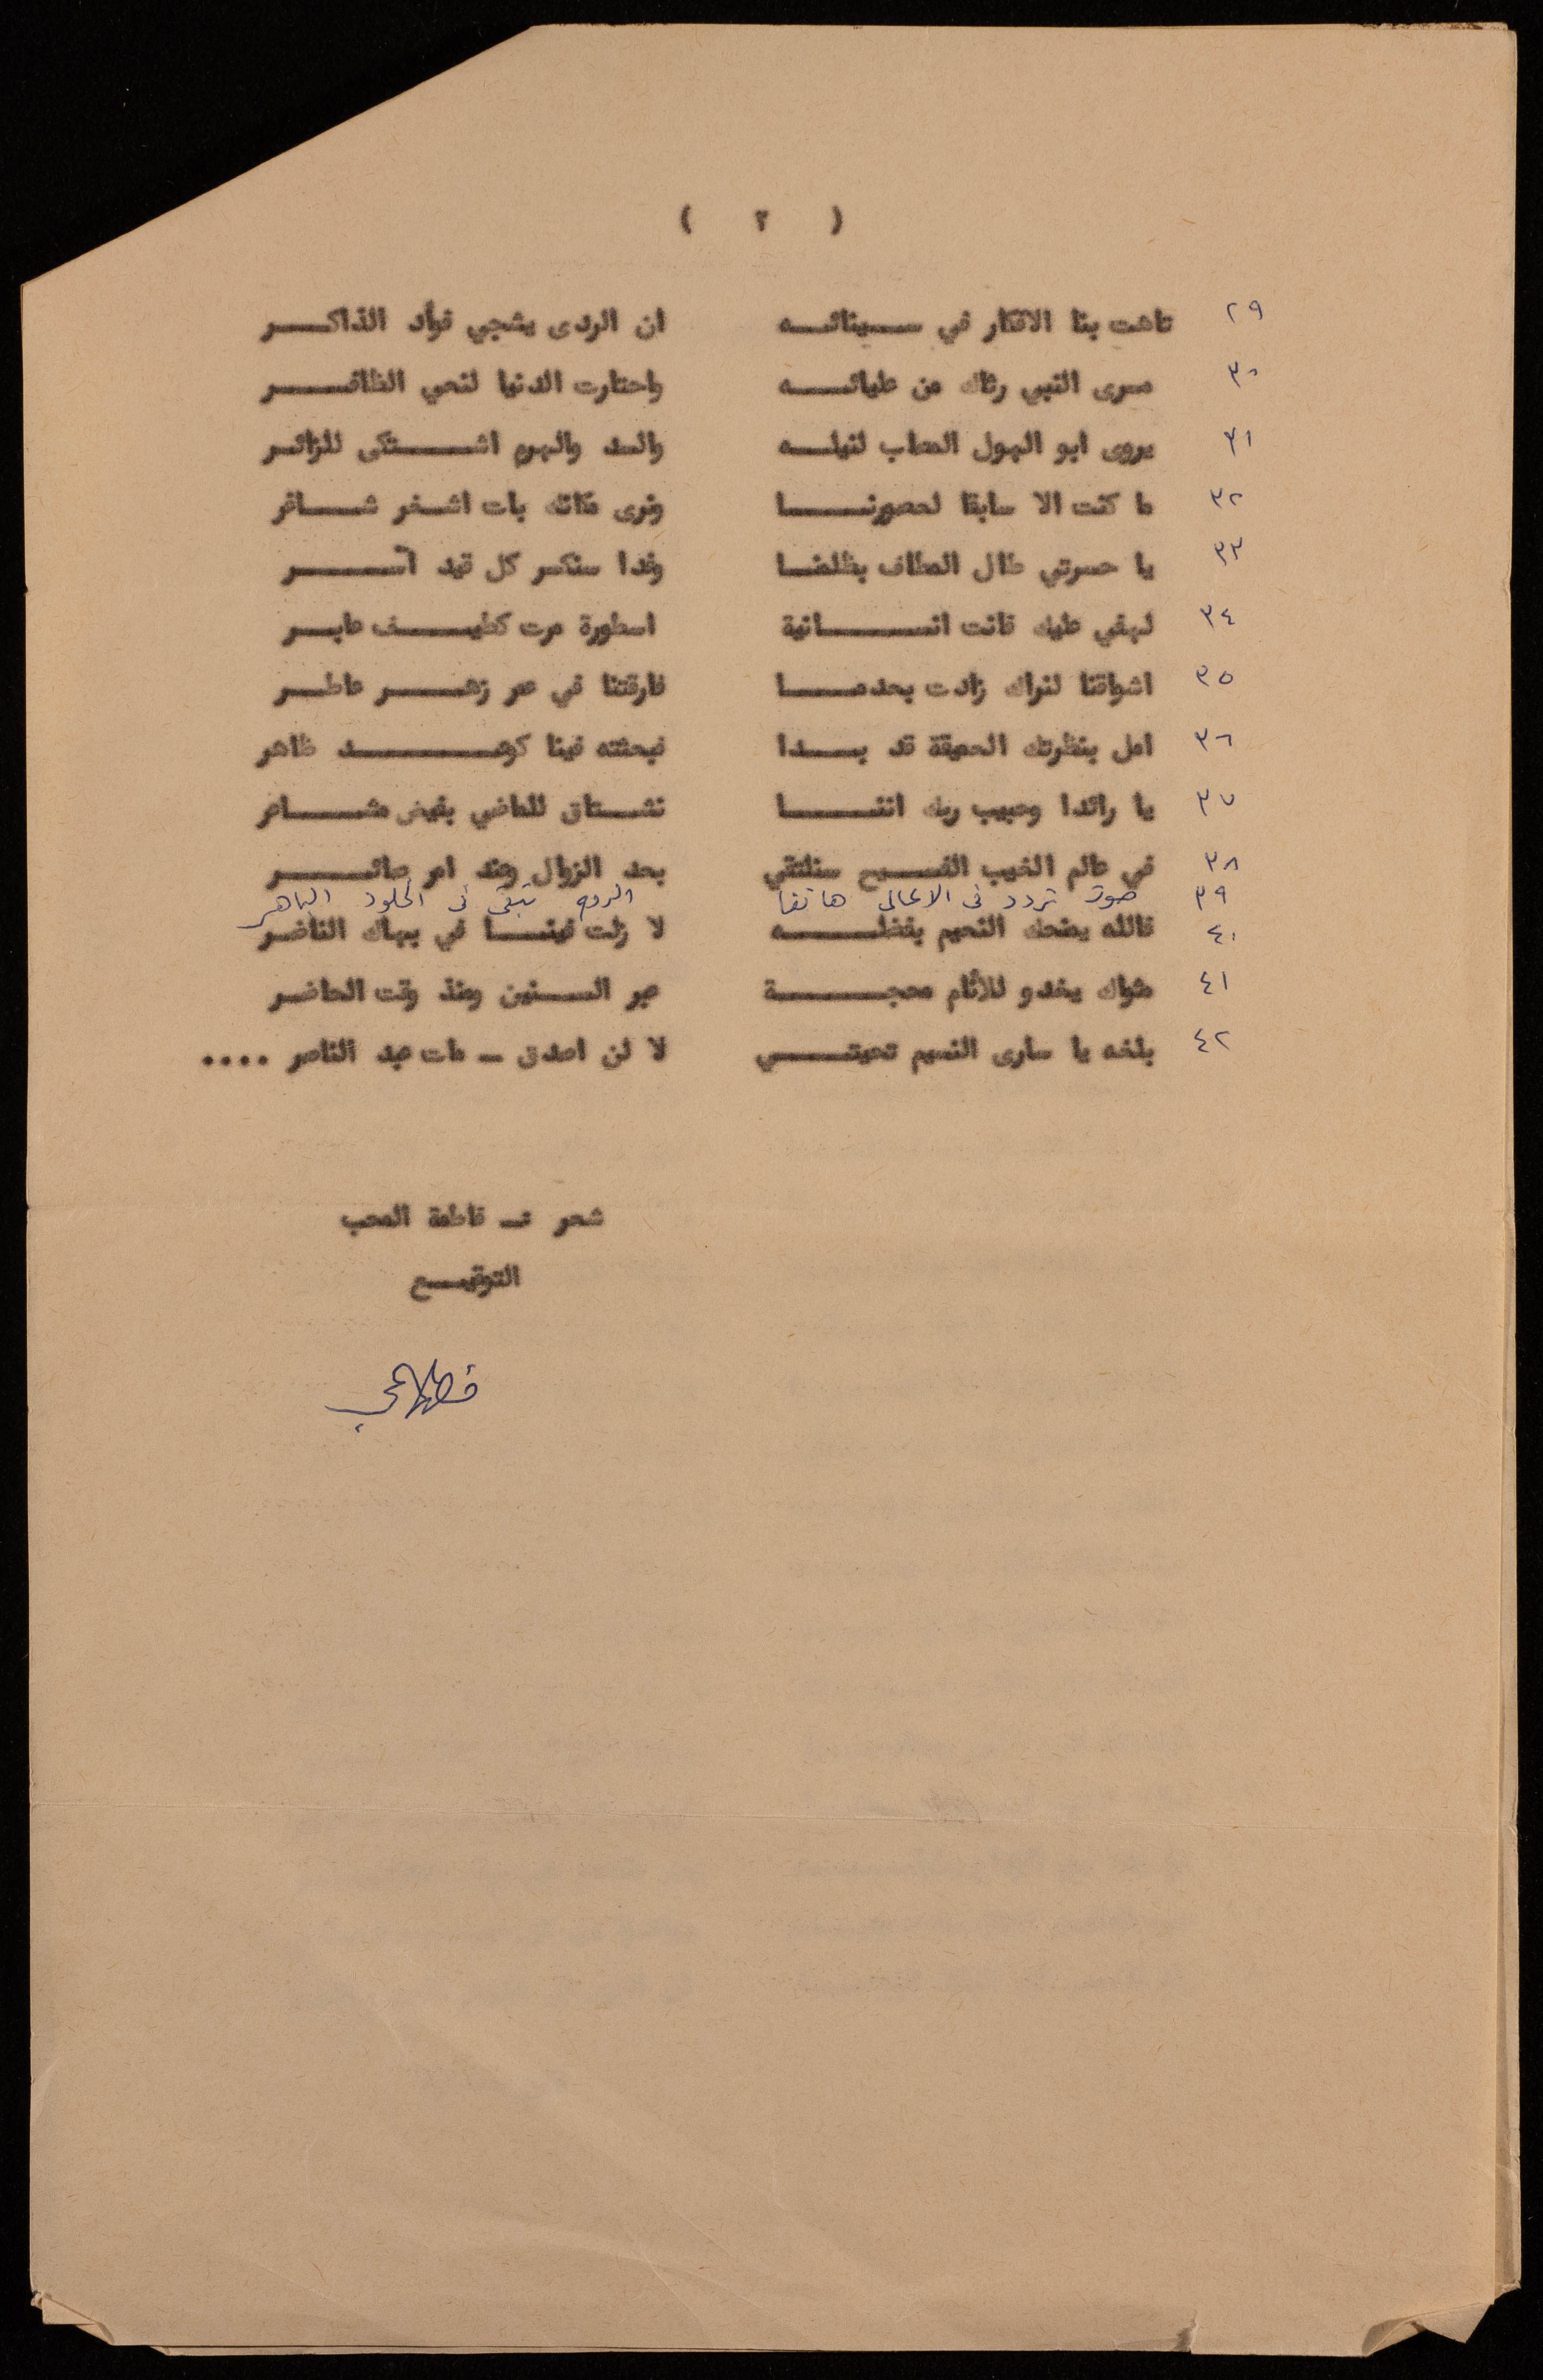 ( ٢ )
٢٩ تاهت بنا الافكار في سينائه ان الردى يشجي فوأد الذاكر
٣٠ مسرى النبي رثاك من عليائه واحتارت الدنيا لنعي الظافر
٣١ يروى ابو الهول المصاب لنيله والسد والهرم اشتكى للزائر
٣٢ ما كنت الا سابقا لعصورنا ونرى مكانك بات اشغر شاغر
٣٣ يا حسرتي طال المطاف بظلمنا وغدا سنكسر كل قيد آسر
٣٤ لهفي عليك فانت انسانية اسطورة مرت كطيف عابر
٣٥ اشواقنا لنراك زادت بعدما فارقتنا في عمر زهر عاطر
٣٦ امل بنظرتك العميقة قد بدا فبعثته فينا كوعد ظاهر
٣٧ يا رائدا وحبيب ربك اننا نشتاق للماضي بفيض مشاعر
٣٨ في عالم الغيب الفسيح سنلتقي بعد الزوال وعند امر صائر
٣٩ صوت تردد فى الاعالى هاتفا الروح تبقى فى الخلود الباهر
٤٠ فالله يمنحك النعيم بفضله لا زلت فينا في بهاك الناضر
٤١ مثواك يغدو للأنام محجة عبر السنين ومنذ وقت الحاضر
٤٢ بلغه يا سارى النسيم تحيتي لا لن اصدق ــ مات عبد الناصر ....
شعر :ــ فاطمة المحب
التوقيع